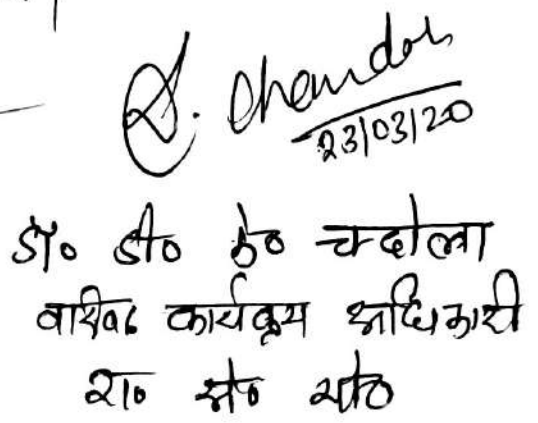 D. Chandola
23/03/20
डॉ० डी० के० चन्दोला
वरिष्ठ कार्यक्रम अधिकारी
रा० से० यो०